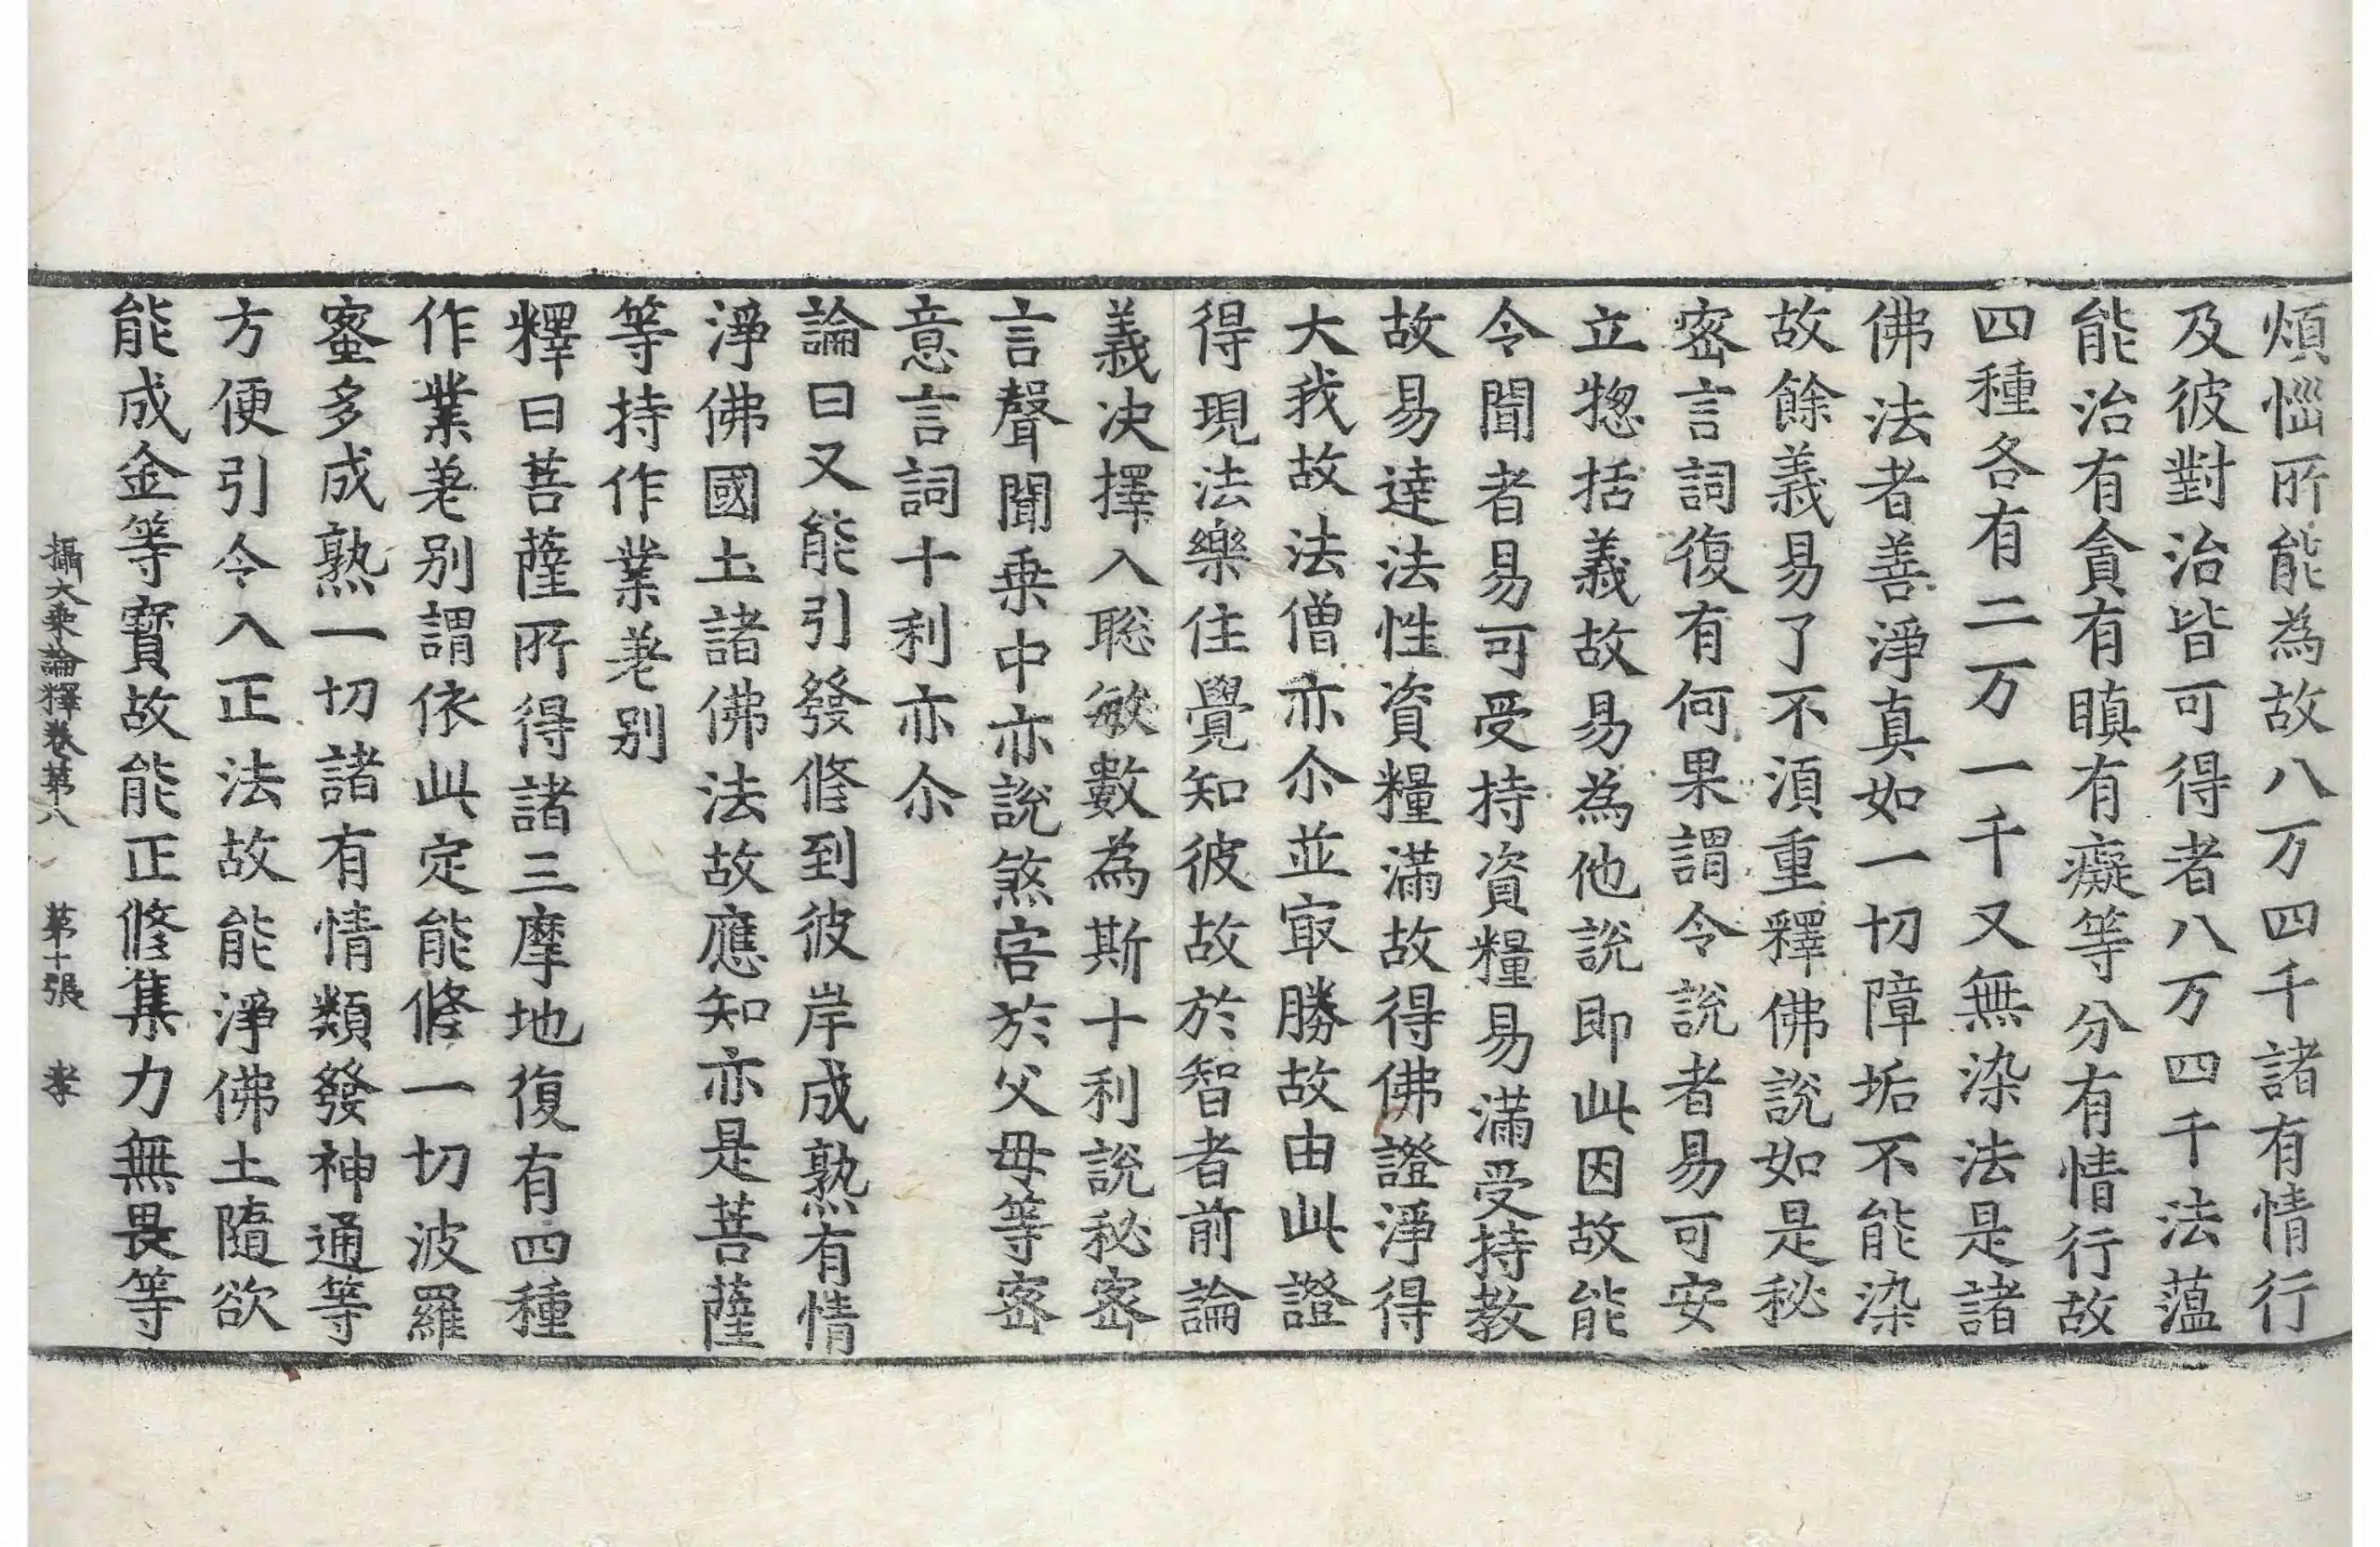 煩惱所能為故八万四千諸有情行
及彼對治皆可得者八万四千法蘊
能治有貪有瞋有癡等分有情行故
四種各有二万一千又無染法是諸
佛法者善淨真如一切障垢不能染
故餘義易了不須重釋佛說如是秘
密言詞復有何果謂令說者易可安
立惣括義故易為他說即此因故能
令聞者易可受持資糧易滿受持教
故易達法性資糧滿故得佛證淨得
大我故法僧亦尒並㝡勝故由此證
得現法樂住覺知彼故於智者前論
義決擇入聡敏數為斯十利說秘密
言聲聞乗中亦說煞害於父母等密
意言詞十利亦尒
論曰又能引發修到彼岸成熟有情
淨佛國土諸佛法故應知亦是菩薩
等持作業差别
釋曰菩薩所得諸三摩地復有四種
作業差别謂依此定能修一切波羅
蜜多成熟一切諸有情類發神通等
方便引令入正法故能淨佛土隨欲
能成金等寳故能正修集力無畏等
攝大乗論釋卷第八 第十張 孝